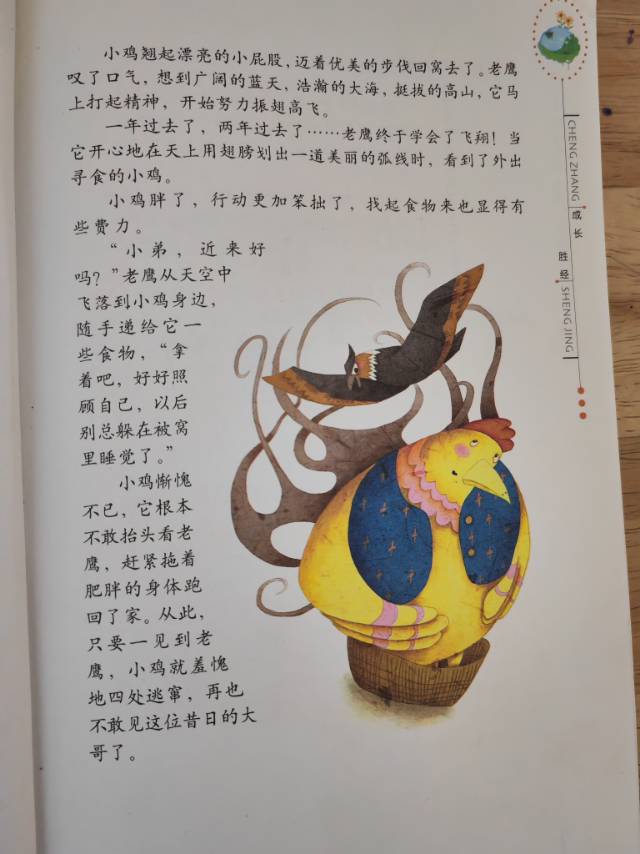 小鸡翘起漂亮的小屁股，迈着优美的步伐回窝去了。老鹰
叹了口气，想到广阔的蓝天，浩瀚的大海，挺拔的高山，它马
上打起精神，开始努力振翅高飞。
一年过去了，两年过去了……老鹰终于学会了飞翔！当
它开心地在天上用翅膀划出一道美丽的弧线时，看到了外出
寻食的小鸡。
小鸡胖了，行动更加笨拙了，找起食物来也显得有
些费力。
“小弟，近来好
吗？”老鹰从天空中
飞落到小鸡身边，
随手递给它一
些食物，“拿
着吧，好好照
顾自己，以后
别总躲在被窝
里睡觉了。”
小鸡惭愧
不已，它根本
不敢抬头看老
鹰，赶紧拖着
肥胖的身体跑
回了家。从此，
只要一见到老
鹰，小鸡就羞愧
地四处逃窜，再也
不敢见这位昔日的大
哥了。
CHENG ZHANG 成长
胜经 SHENG JING